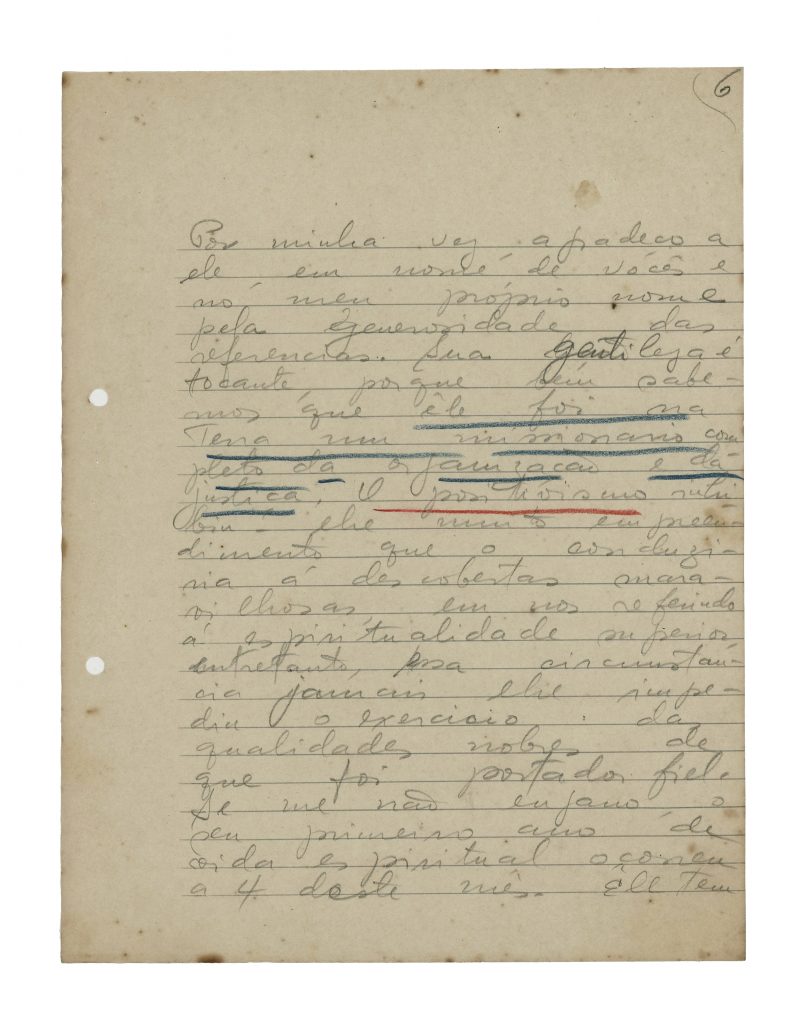 6
Por minha vez, agradeço a
ele em nome de vocês e
no meu próprio nome
pela generosidade das
referencias. Sua gentileza é
tocante, porque bem sabe-
mos que êle foi na
Terra um missionario com
pleto da organização e da
justiça. O positivismo inhi
biu-lhe muito empreen-
dimento que o conduzi-
ria á descobertas mara-
vilhosas, em nos referindo
á espiritualidade superior
entretanto, essa circunstan-
cia jamais lhe impe-
diu o exercicio das
qualidades nobres de
que foi portador fiel.
Se me não engano o
seu primeiro ano de
vida espiritual ocorreu
a 4 deste mês. Êle tem